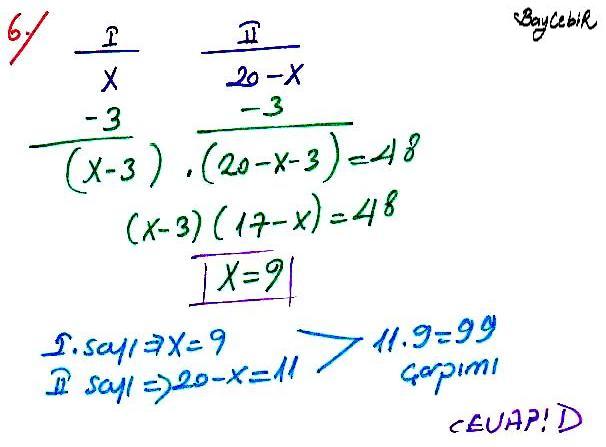 6./ BayCebiR
I II
X 20-X
-3 -3
(X-3) . (20-X-3) = 48
(X-3) (17-X) = 48
X=9
I. sayı ⇒ X=9
II sayı ⇒ 20-X=11
11.9=99
Çarpımı
CEVAP! D